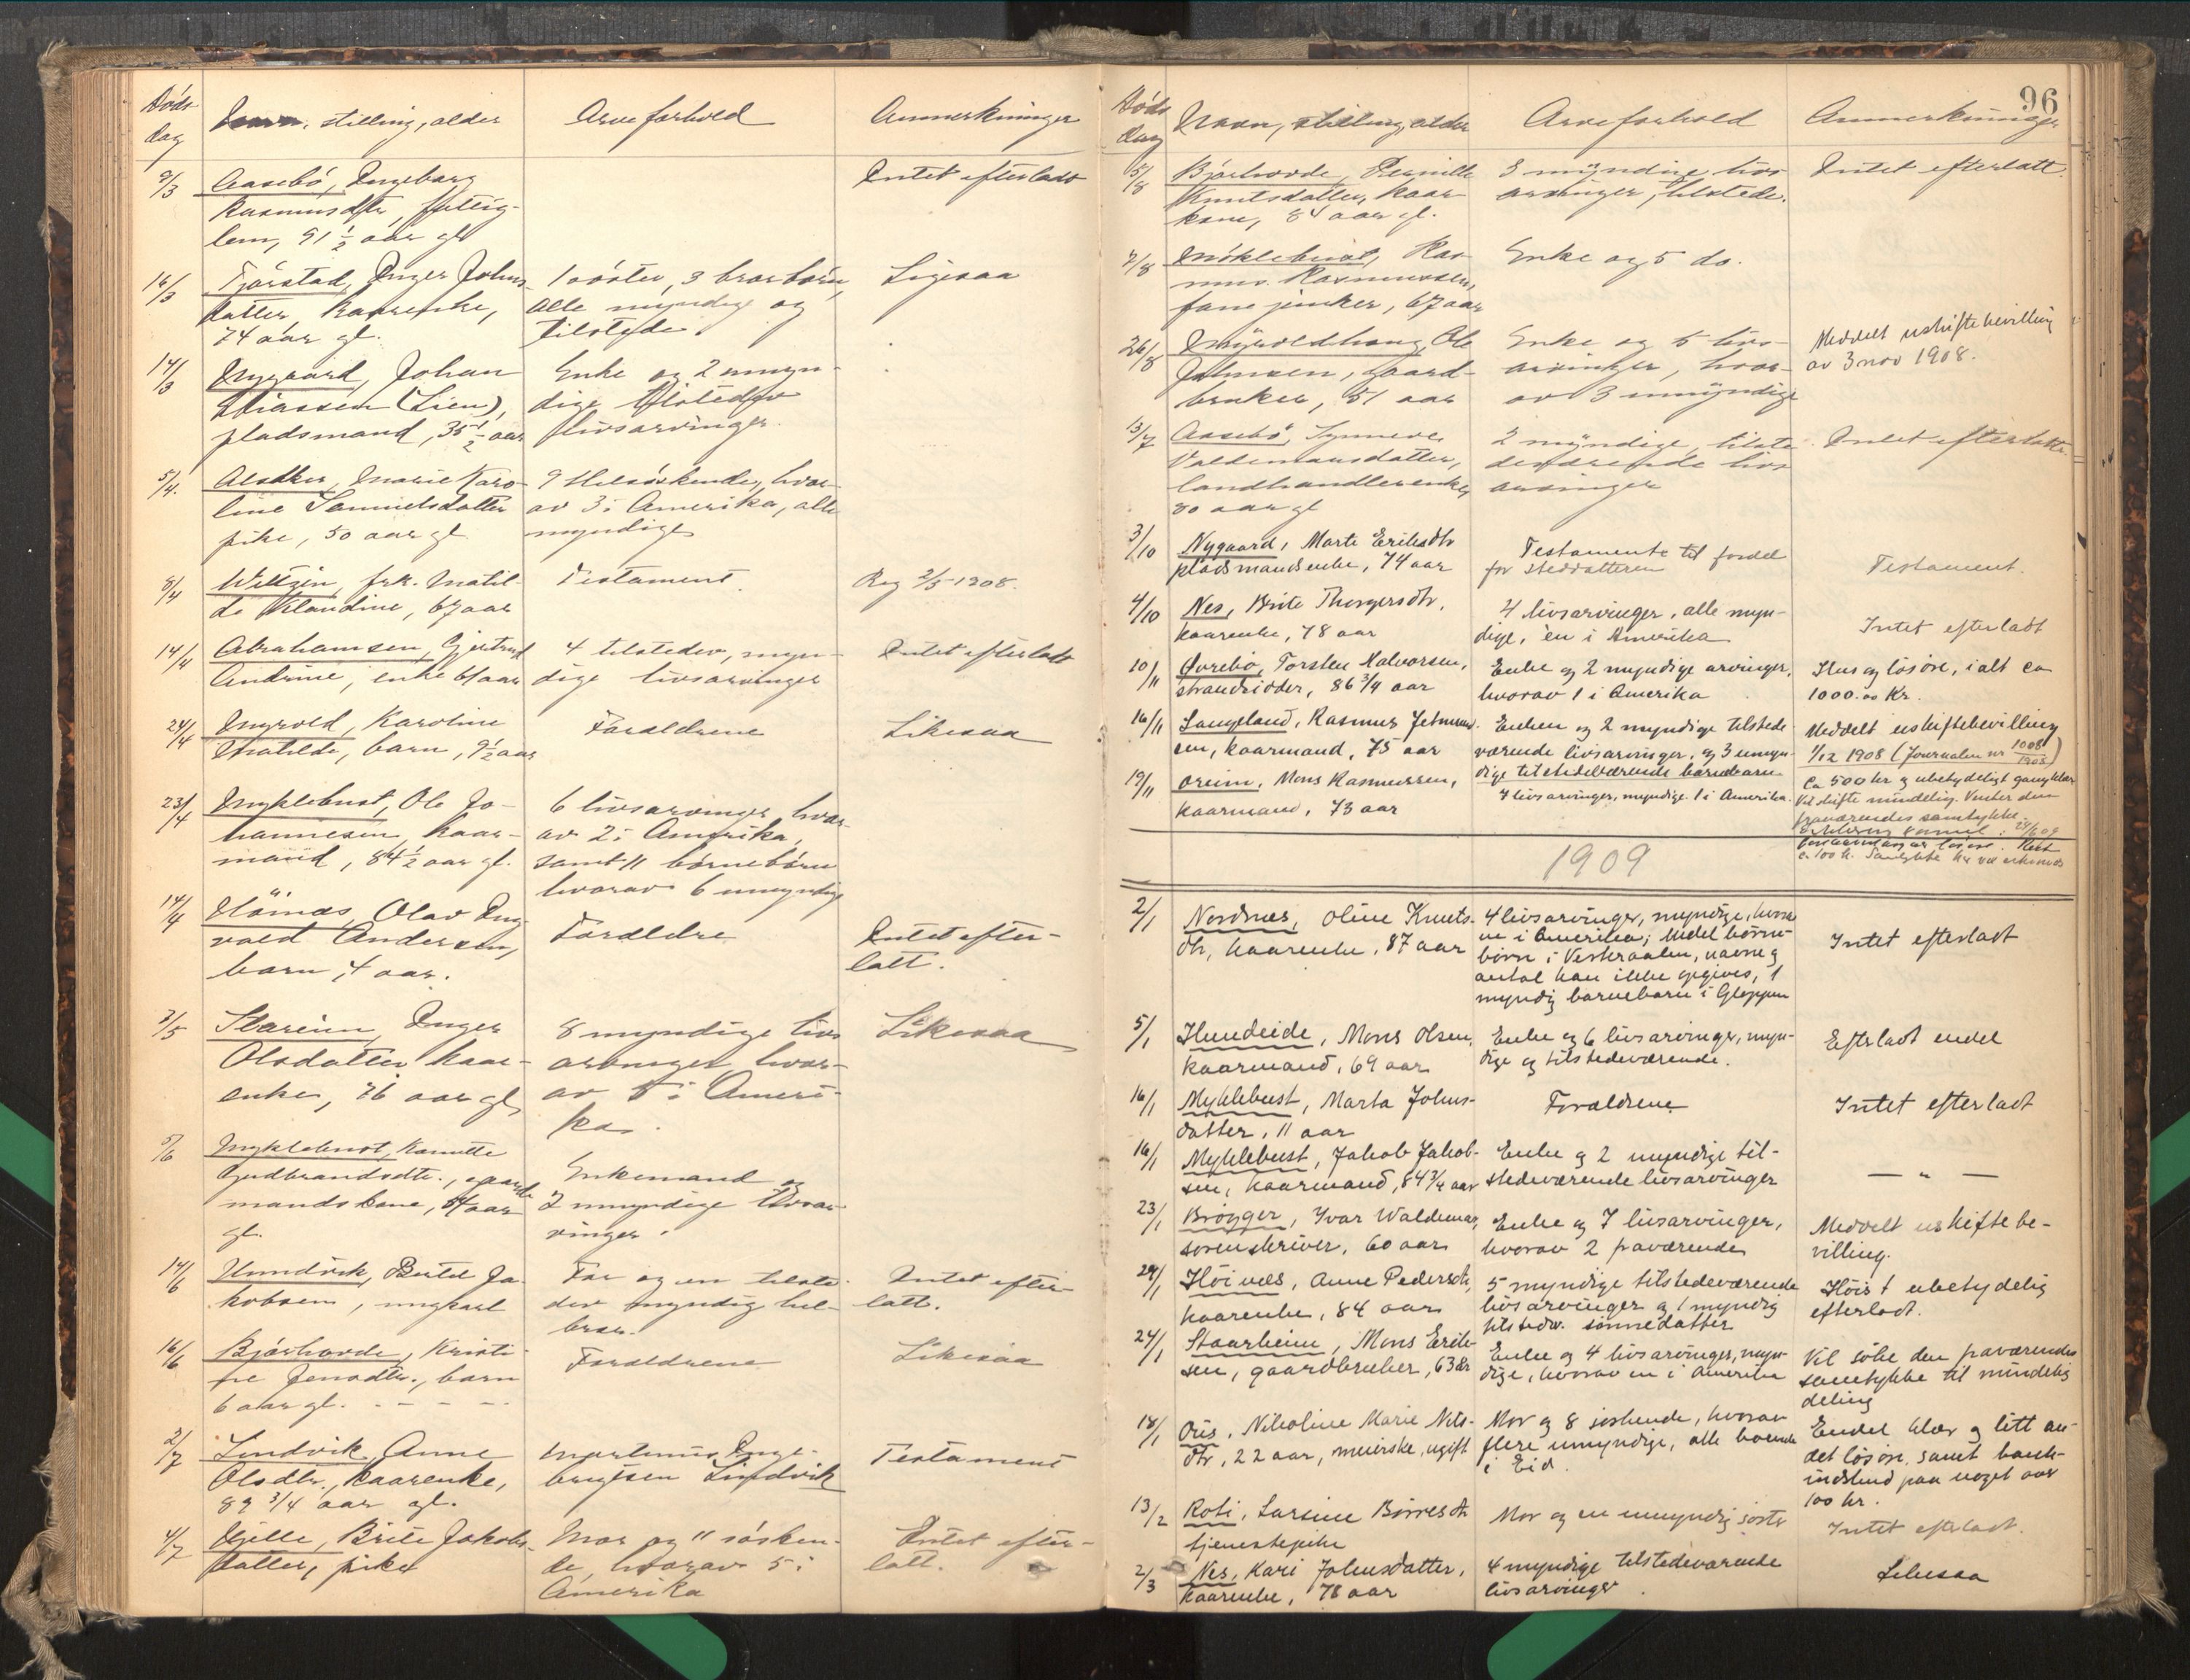 Döds
dag
Navn, stilling, alder
Arveforhold
Anmerkninger
9/3
Aasebö, Ingeborg
Rasmusdtr, fattig-
lem, 91 1/2 aar gl
Intet efterladt
16/3
Fjörstad, Inger Johns-
datter, kaarenke,
74 aar gl.
1 söster, 3 brorbörn,
alle myndige og
tilstede.
Ligesaa
14/3
Nygaard, Johan
(Lien),
pladsmand, 35 1/2 aar
Enke og 2 umyn-
dige tilstedev
livsarvinger.
5/4
Marie Karo-
line Samuelsdatter
pike, 50 aar gl
9 Helsöskende, hvor-
av 3 i Amerika, alle
myndige
8/4
Wiltzin, frk. Matil-
de Klaudine, 67 aar
Testament.
Reg 2/5 1908.
14/4
Abrahamsen, Gjertrud
Andrine, enke 61 aar
4 tilstedev, myn-
dige livsarvinger
Intet efterladt
24/4
Myrold, Karoline
Matilde, barn, 9 1/2 aar
Forældrene
Likesaa
23/4
Myklebust, Ole Jo-
hannesen, kaar-
mand, 84 1/2 aar gl.
6 livsarvinger, hvor-
av 2 i Amerika,
samt 11 börnebörn
hvorav 6 umyndig
14/4
Hömæs, Olav Ing-
vald Andersen,
barn, 4 aar.
Forældre
Intet efter-
latt.
3/5
Stareim, Inger
Olsdatter kaar-
enke, 76 aar gl
8 myndige livs
arvinger, hvor-
av 5 i Ameri-
ka.
Likesaa
5/6
Myklebust, Kamille
Gudbrandsdtr., gaard
mandskone, 54 aar
gl.
Enkemand og
2 umyndige livsar-
vinger.
14/6
Hundvik, Bertel Ja-
kobsen, ungkarl
Far og en tilste-
dev myndig hel-
bror.
Intet efter-
latt.
16/6
Bjørhovde, Kristi-
ne Jensdtr., barn
6 aar gl. - - - -
Forældrene
Likesaa
2/7
Lindvik, Anne
Olsdtr., kaarenke,
89 3/4 aar gl.
Martinus Inge-
brigtsen Lindvik
Testament
4/7
Hjelle, Brite Jakobs-
datter, pike
Mor og 11 sösken-
de, hvorav 5 i
Amerika
Intet efter-
latt.
96
Döds
dag
Navn, stilling, alder
Arveforhold
Anmerkninger
5/8
Bjørhovde, Pernille
Knutsdatter, kaar
kone, 84 aar gl.
3 myndige livs
arvinger, tilstede.
Intet efterlatt.
7/8
Möklebust, Ras-
mus Rasmussen,
fanejunker, 67 aar
Enke og 5 do.
26/8
Myroldhaug, Ole
Johnsen, gaard-
bruker, 51 aar
Enke og 5 livs-
arvinger, hvor-
av 3 umyndige
Meddelt uskiftebevilling
av 3 nov 1908.
13/7
Aasebö, Synneve
Valdemarsdatter,
landhandlerenke,
80 aar gl
2 myndige, tilste
deværende livs
arvinger
Intet efterlatt.
3/10
Nygaard, Marte Eriksdtr
pladsmandsenke, 74 aar
Testamente til fordel
for steddatteren
Testament.
4/10
Nes, Brite Thorgersdtr,
kaarenke, 78 aar
4 livsarvinger, alle myn-
dige, én i Amerika
Intet efterladt
10/11
Øvrebö, Torsten Halvorsen,
strandsidder, 86 3/4 aar
Enke og 2 myndige arvinger,
hvorav 1 i Amerika
Hus og lösöre, i alt ca
1000.00 Kr.
16/11
Langeland, Rasmus Jetmund-
sen, kaarmand, 75 aar
Enken og 2 myndige tilstede
værende livsarvinger, og 3 umyn-
dige tilstedeværende barnebarn
Meddelt uskiftebevilling
1/12 1908 (Journalen nr 1008/1908)
19/11
Oreim, Mons Rasmussen,
kaarmand, 73 aar
4 livsarvinger, myndige. 1 i Amerika.
Ca 500 kr og ubetydeligt gangklær
Vil skifte mindelig. Venter den
fraværendes samtykke.
24/6 09
1909
2/1
Nordnes, Oline Knuts-
dtr, kaarenke, 87 aar
4 livsarvinger, myndige, hvorav
en i Amerika; endel börne-
börn i Vesteraalen, navne og
antal kan ikke opgives, 1
myndig barnebarn i Gloppen
Intet efterladt
5/1
Hundeide, Mons Olsen,
kaarmand, 69 aar
Enke og 6 livsarvinger, myn-
dige og tilstedeværende.
Efterladt endel
16/1
Myklebust, Marta Johns-
datter, 11 aar
Forældrene
Intet efterladt
16/1
Myklebust, Jakob Jakob-
sen, kaarmand, 84 3/4 aar
Enke og 2 myndige til-
stedeværende livsarvinger
— " —
23/1
Brögger, Ivar Waldemar,
sorenskriver, 60 aar
Enke og 7 livsarvinger,
hvorav 2 fraværende
Meddelt uskiftebe-
villing.
29/1
Höinæs, Anne Pedersdtr,
kaarenke, 84 aar
5 myndige tilstedeværende
livsarvinger og 1 myndig
tilstedev. sönnedatter
Höist ubetydelig
efterladt.
24/1
Staarheim, Mons Erik-
sen, gaardbruker, 63 år
Enke og 4 livsarvinger, myn-
dige, hvorav en i Amerika
Vil söke den fraværendes
samtykke til mindelig
deling
18/1
Öris, Nikoline Marie Nils-
dtr, 22 aar, meierske, ugift
Mor og 8 söskende, hvorav
flere umyndige, alle boende
i Eid.
Endel klær og litt an-
det lösöre, samt bank-
indskud paa noget over
100 kr.
13/2
Roti, Larsine Börresdtr
tjenestepike
Mor og en umyndig söster
Intet efterladt.
2/3
Nes, Kari Johnsdatter,
kaarenke, 78 aar
4 myndige tilstedeværende
livsarvinger.
Likesaa